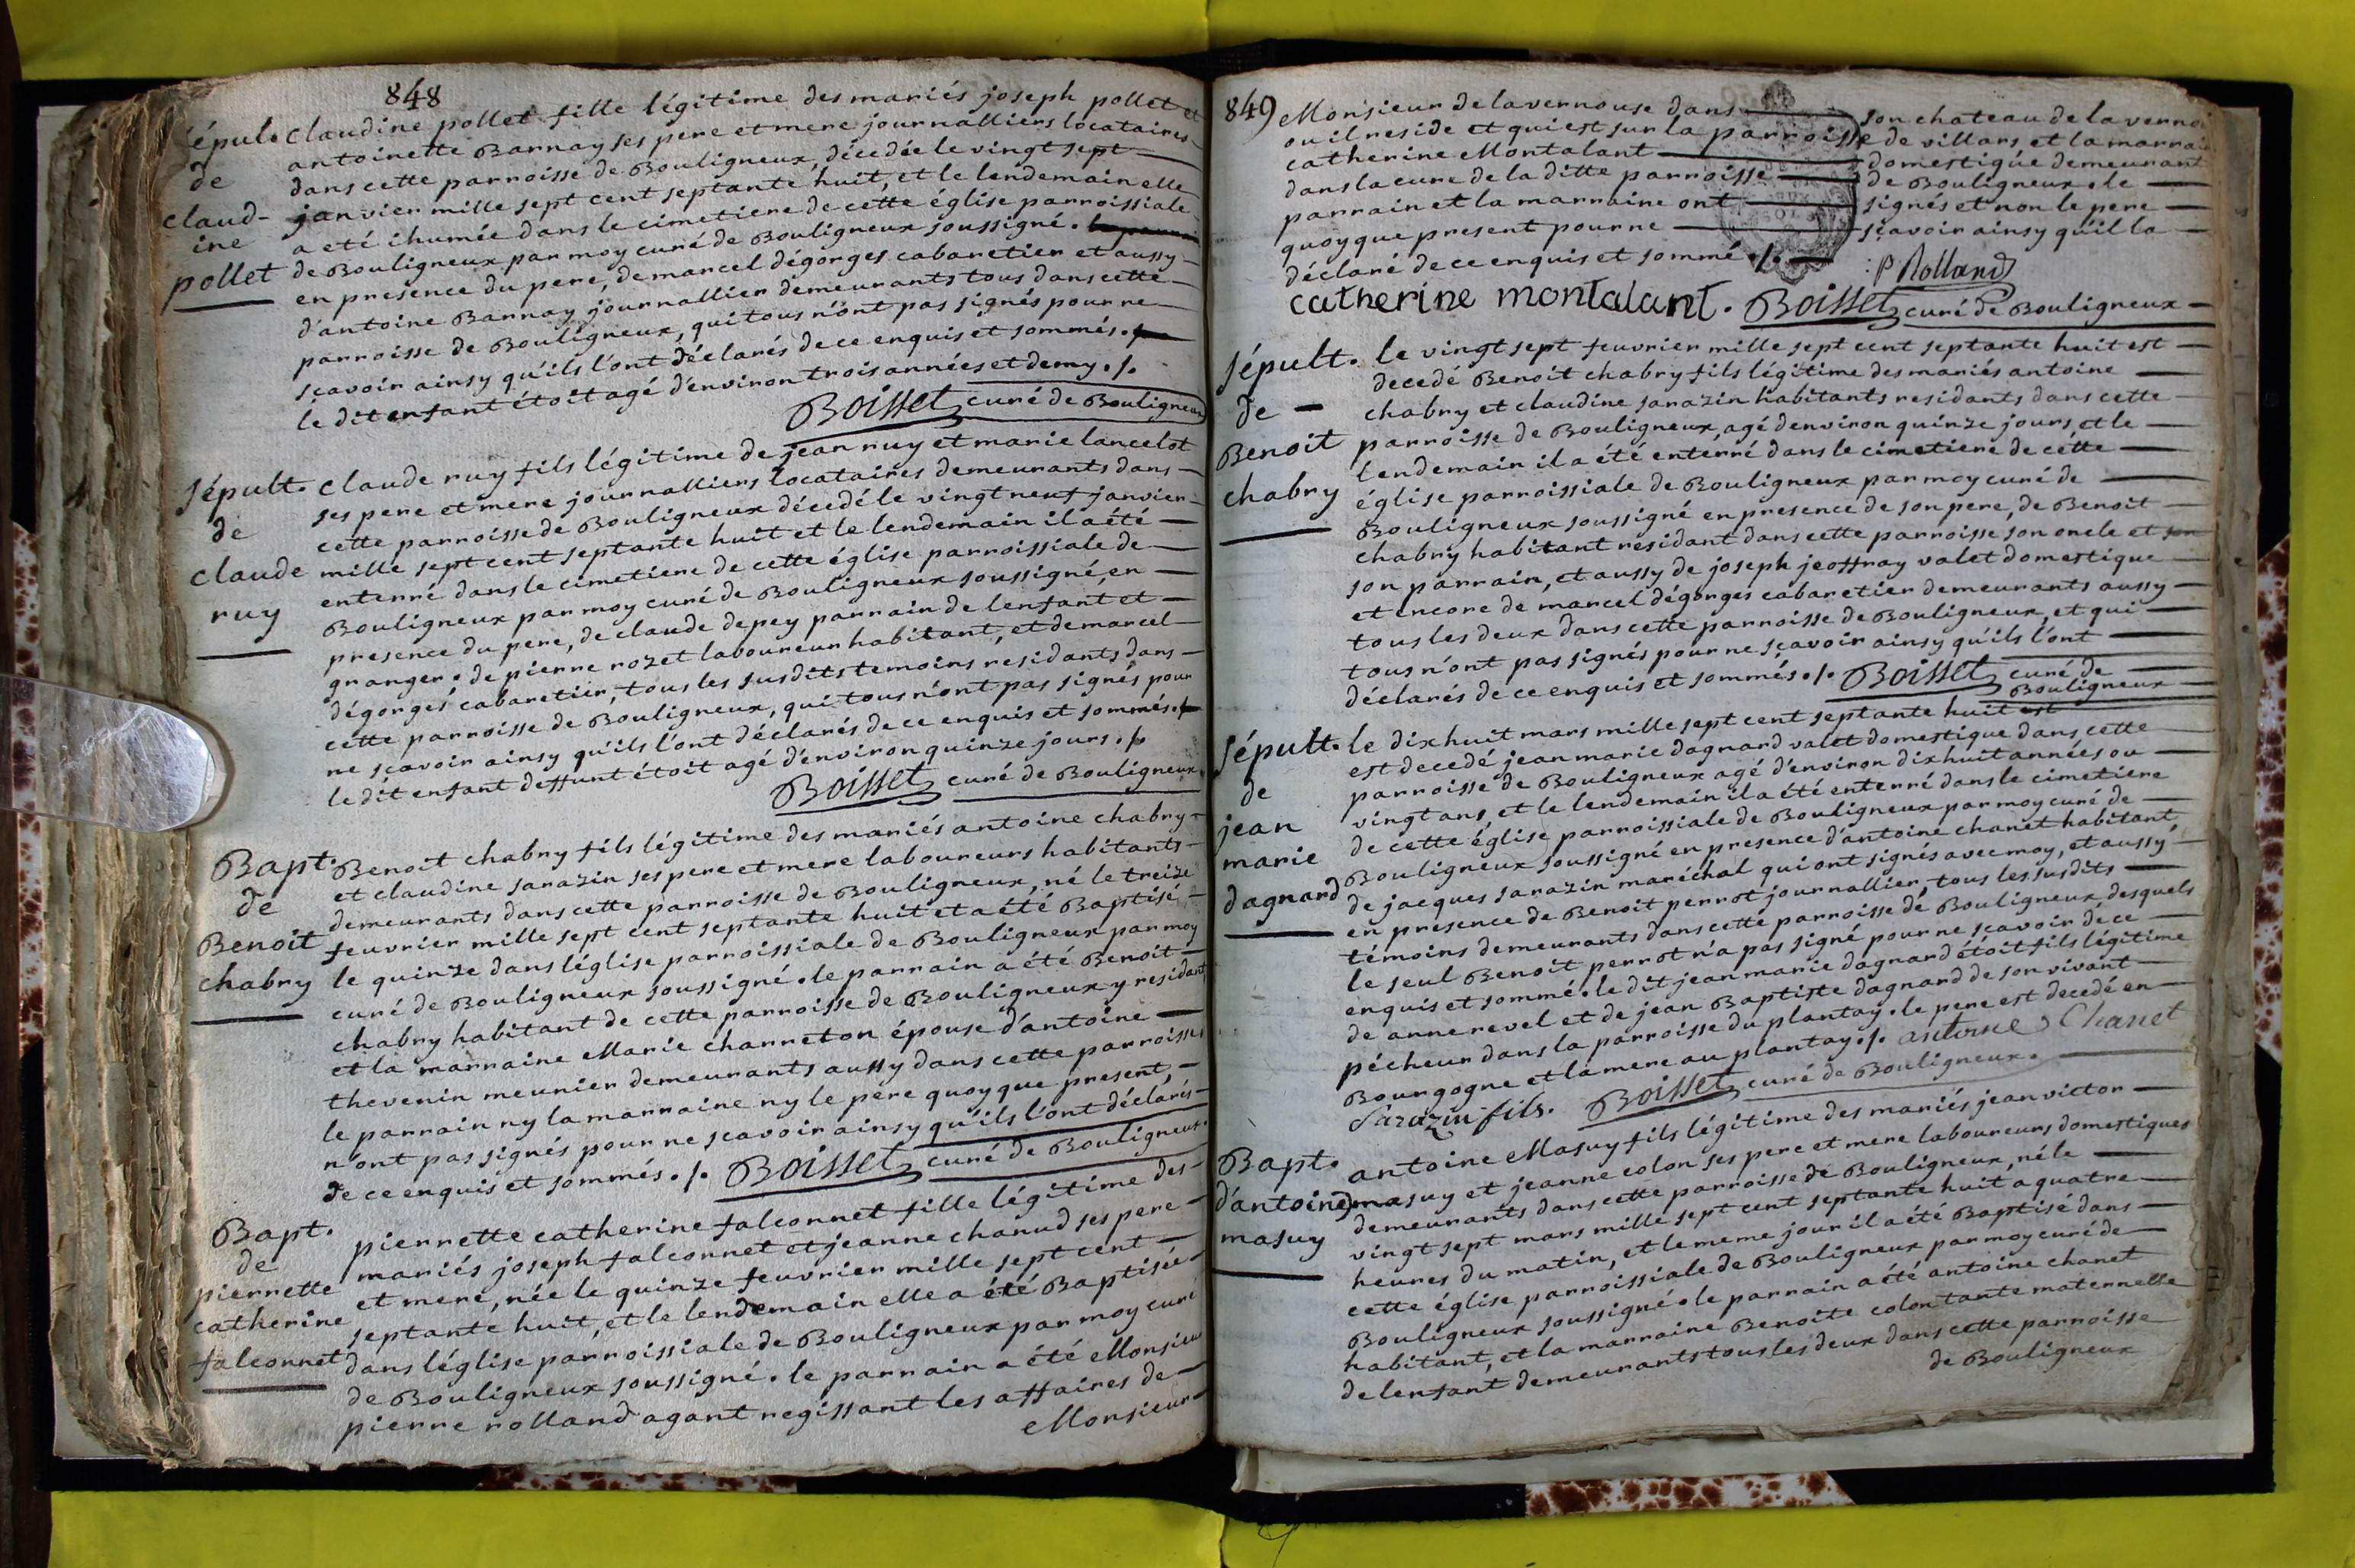 848
sépul. claudine pollet fille légitime des mariés joseph pollet et
de antoinette Barnay ses pere et mere journalliers locataires
claud- dans cette parroisse de Bouligneux, décedée le vingt sept
ine janvier mille sept cent septante huit, et le lendemain elle
pollet a eté ihumée dans le cimetiere de cette église parroissiale
de Bouligneux par moy curé de Bouligneux soussigné.
en presence du pere, de marcel dégorges cabaretier et aussy
d'antoine Barnay journallier demeurants tous dans cette
parroisse de Bouligneux, qui tous n'ont pas signés pour ne
sçavoir ainsy qu'ils l'ont déclarés de ce enquis et sommés./.
le dit enfant étoit agé d'environ trois années et demy./.
Boisset curé de Bouligneux
sépult. claude ruy fils légitime de jean ruy et marie lancelot
de ses pere et mere journalliers locataires demeurants dans
claude cette parroisse de Bouligneux décedé le vingt neuf janvier
ruy mille sept cent septante huit et le lendemain il a été
enterré dans le cimetiere de cette église parroissiale de
Bouligneux par moy curé de Bouligneux soussigné, en
presence du pere, de claude depey parrain de lenfant et
granger. de pierre rozet laboureur habitant, et de marcel
dégorges cabaretier, tous les susdits temoins residants dans
cette parroisse de Bouligneux, qui tous n'ont pas signés pour
ne sçavoir ainsy qu'ils l'ont déclarés de ce enquis et sommés./.
le dit enfant deffunt étoit agé d'environ quinze jours./.
Boisset curé de Bouligneux
Bapt. Benoit chabry fils légitime des mariés antoine chabry
de et claudine sarazin ses pere et mere laboureurs habitants
Benoit demeurants dans cette parroisse de Bouligneux, né le treize
chabry feuvrier mille sept cent septante huit et a été Baptisé
le quinze dans léglise parroissiale de Bouligneux par moy
curé de Bouligneux soussigné. le parrain a été Benoit
chabry habitant de cette parroisse de Bouligneux y residant,
et la marraine Marie charreton épouse d'antoine
thevenin meunier demeurants aussy dans cette parroisse,
le parrain ny la marraine ny le pere quoyque present,
n'ont pas signés pour ne sçavoir ainsy qu'ils l'ont déclarés
de ce enquis et sommés./. Boisset curé de Bouligneux.
Bapt. pierrette catherine falconnet fille légitime des
de mariés joseph falconnet et jeanne chanud ses pere
pierrette et mere, née le quinze feuvrier mille sept cent
catherine septante huit, et le lendemain elle a été Baptisée
falconnet dans léglise parroissiale de Bouligneux par moy curé
de Bouligneux soussigné. le parrain a été Monsieur
pierre rolland agant regissant les affaires de
Monsieur
849 Monsieur de lavernouse dans son chateau de la
ou il reside et qui est sur la parroisse de villars, et la
catherine Montalant domestique demeurant
dans la cure de la ditte parroisse de Bouligneux. le
parrain et la marraine ont signés et non le pere
quoyque present pour ne sçavoir ainsy qu'il la
déclaré de ce enquis et sommé./. P Rolland
catherine montalant. Boisset curé de Bouligneux
sépult. le vingt sept feuvrier mille sept cent septante huit est
de decedé Benoit chabry fils légitime des mariés antoine
Benoit chabry et claudine sarazin habitants residants dans cette
chabry parroisse de Bouligneux, agé denviron quinze jours, et le
lendemain il a été enterré dans le cimetiere de cétte
église parroissiale de Bouligneux par moy curé de
Bouligneux soussigné en presence de son pere, de Benoit
chabry habitant residant dans cette parroisse son oncle et
son parrain, et aussy de joseph jeoffray valet domestique
et encore de marcel dégorges cabaretier demeurants aussy
tous les deux dans cette parroisse de Bouligneux, et qui
tous n'ont pas signés pour ne sçavoir ainsy qu'ils l'ont
déclarés de ce enquis et sommés./. Boisset curé de
Bouligneux
sépult. le dix huit mars mille sept cent septante huit est
de est decedé jean marie dagnard valet domestique dans cette
jean parroisse de Bouligneux agé d'environ dix huit années ou
marie vingt ans, et le lendemain il a été enterré dans le cimetiere
dagnard de cette église parroissiale de Bouligneux par moy curé de
Bouligneux soussigné en presence d'antoine chanet habitant,
de jacques sarazin maréchal qui ont signés avec moy, et aussy
en presence de Benoit perrot journallier, tous les susdits
témoins demeurants dans cette parroisse de Bouligneux, desquels
le seul Benoit perrot n'a pas signé pour ne sçavoir de ce
enquis et sommé. le dit jean marie dagnard étoit fils légitime
de anne revel et de jean Baptiste dagnard de son vivant
pécheur dans la parroisse du plantay. le pere est decedé en
Bourgogne et la mere au plantay./. antoine Chanet
Sarazin fils. Boisset curé de Bouligneux.
Bapt. antoine Masuy fils légitime des mariés jean victor
d'antoine masuy et jeanne colon ses pere et mere laboureurs domestiques
masuy demeurants dans cette parroisse de Bouligneux, né le
vingt sept mars mille sept cent septante huit a quatre
heures du matin, et le meme jour il a été Baptisé dans
cette église parroissiale de Bouligneux par moy curé de
Bouligneux soussigné. le parrain a été antoine chanet
habitant, et la marraine Benoite colon tante maternelle
de lenfant demeurants tous les deux dans cette parroisse
de Bouligneux